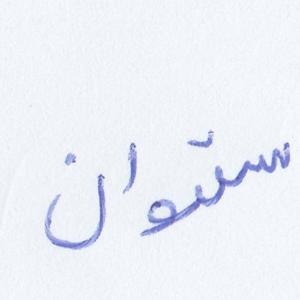 ستوان